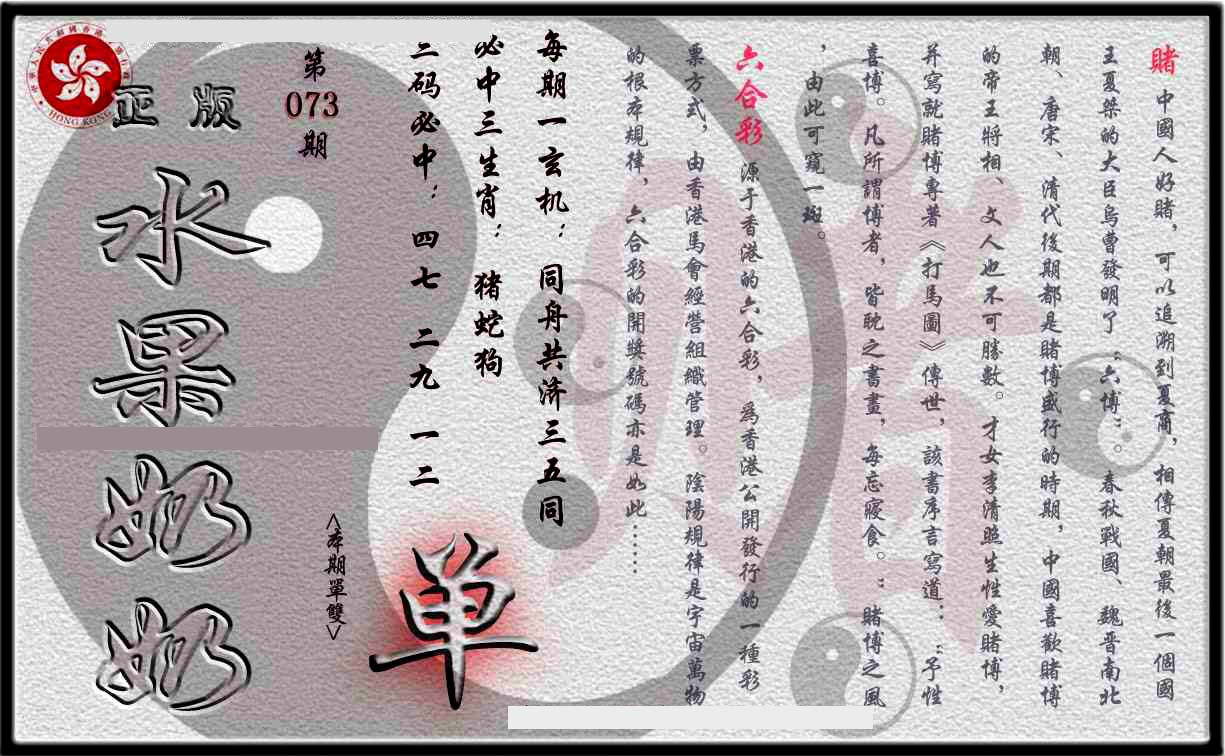 賭 中國人好賭，可以追溯到夏商，相傳夏朝最後一個國
王夏桀的大臣烏曹發明了“六博”。春秋戰國、魏晋南北
朝、唐宋、清代後期都是賭博盛行的時期，中國喜歡賭博
的帝王將相、文人也不可勝數。才女李清照生性愛賭博，
并寫就賭博專著《打馬圖》傳世，該書序言寫道：“予性
喜博。凡所謂博者，皆耽之書畫，每忘寢食。”賭博之風
，由此可窺一斑。
六合彩 源于香港的六合彩，爲香港公開發行的一種彩
票方式，由香港馬會經營組織管理。陰陽規律是宇宙萬物
的根本規律，六合彩的開獎號碼亦是如此……
每期一玄机：同舟共济三五同
必中三生肖：猪蛇狗
二码必中：四七 二九 一二
单
<本期單雙>
第
073
期
正版
水果奶奶
HONG KONG